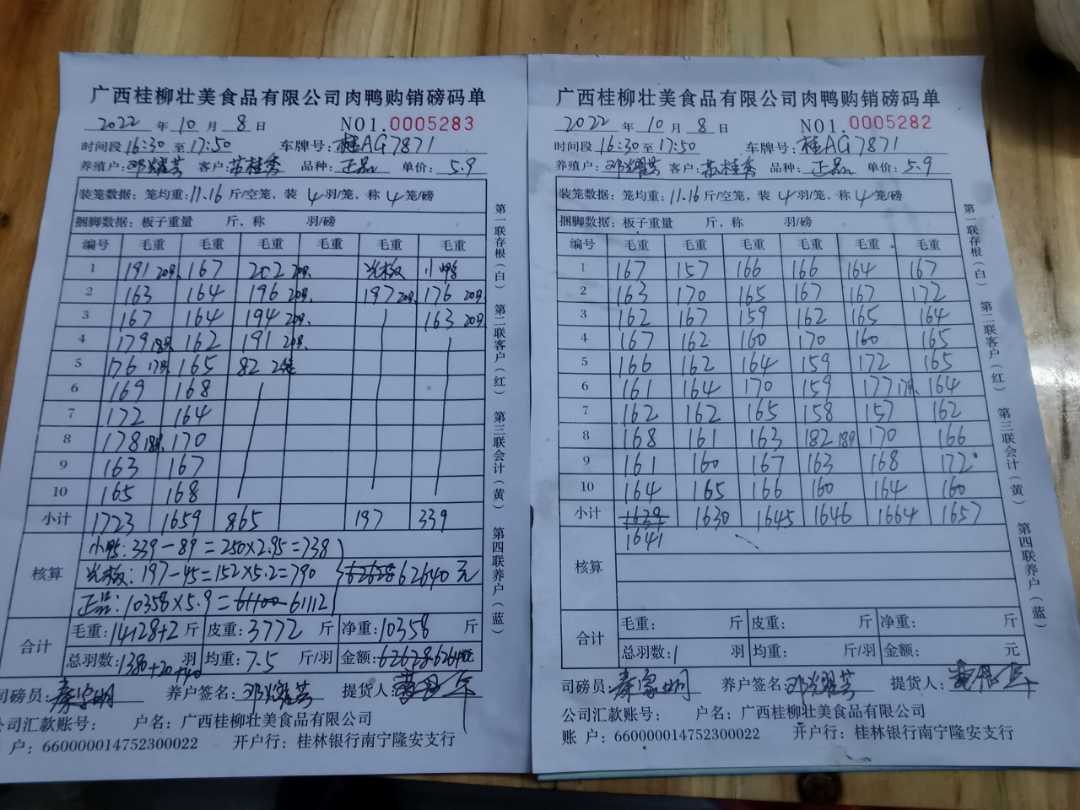 广西桂柳壮美食品有限公司肉鸭购销磅码单
2022 年 10 月 8 日 NO1.0005283
时间段 16:30 至 17:50 车牌号: 桂AG7871
养殖户: 邓耀芳 客户: 苏桂秀 品种: 正品 单价: 5.9
装笼数据: 笼均重: 11.16 斤/空笼, 装 4 羽/笼, 称 4 笼/磅
捆脚数据: 板子重量 斤、称 羽/磅
编号 毛重 毛重 毛重 毛重 毛重 毛重
1 191 20只 167 202 20只 光板 小鸭
2 163 164 196 20只 197 20只 176 20只
3 167 164 194 20只 163 20只
4 179 18只 162 191 20只
5 176 17只 165 82 2笼
6 169 168
7 172 164
8 178 18只 170
9 163 167
10 165 168
小计 1723 1659 865 197 339
核算
小鸭: 339-89=250×2.95=738
光板: 197-45=152×5.2=790 62628 62640 元
正品: 10358×5.9=61100 61112
合计
毛重: 14128+2 斤 皮重: 3772 斤 净重: 10358 斤
总羽数: 1380+20+40 羽 均重: 7.5 斤/羽 金额: 62628 62640 元
司磅员: 养户签名: 邓耀芳 提货人:
公司汇款账号: 户名: 广西桂柳壮美食品有限公司
户: 660000014752300022 开户行: 桂林银行南宁隆安支行
第一联存根(白) 第二联客户(红) 第三联会计(黄) 第四联养户(蓝)
广西桂柳壮美食品有限公司肉鸭购销磅码单
2022 年 10 月 8 日 NO1.0005282
时间段 16:30 至 17:50 车牌号: 桂AG7871
养殖户: 邓耀芳 客户: 苏桂秀 品种: 正品 单价: 5.9
装笼数据: 笼均重: 11.16 斤/空笼, 装 4 羽/笼, 称 4 笼/磅
捆脚数据: 板子重量 斤、称 羽/磅
编号 毛重 毛重 毛重 毛重 毛重 毛重
1 167 157 166 166 164 167
2 163 170 165 167 167 172
3 162 167 159 162 165 164
4 167 162 160 170 160 165
5 166 162 164 159 172 165
6 161 164 170 159 177 17只 164
7 162 162 165 158 157 162
8 168 161 163 182 18只 170 166
9 161 160 167 163 168 172
10 164 165 166 160 164 160
小计 1639 1630 1645 1646 1664 1657
1641
核算
合计
毛重: 斤 皮重: 斤 净重: 斤
总羽数: 羽 均重: 斤/羽 金额: 元
司磅员: 养户签名: 邓耀芳 提货人:
公司汇款账号: 户名: 广西桂柳壮美食品有限公司
账 户: 660000014752300022 开户行: 桂林银行南宁隆安支行
第一联存根(白) 第二联客户(红) 第三联会计(黄) 第四联养户(蓝)